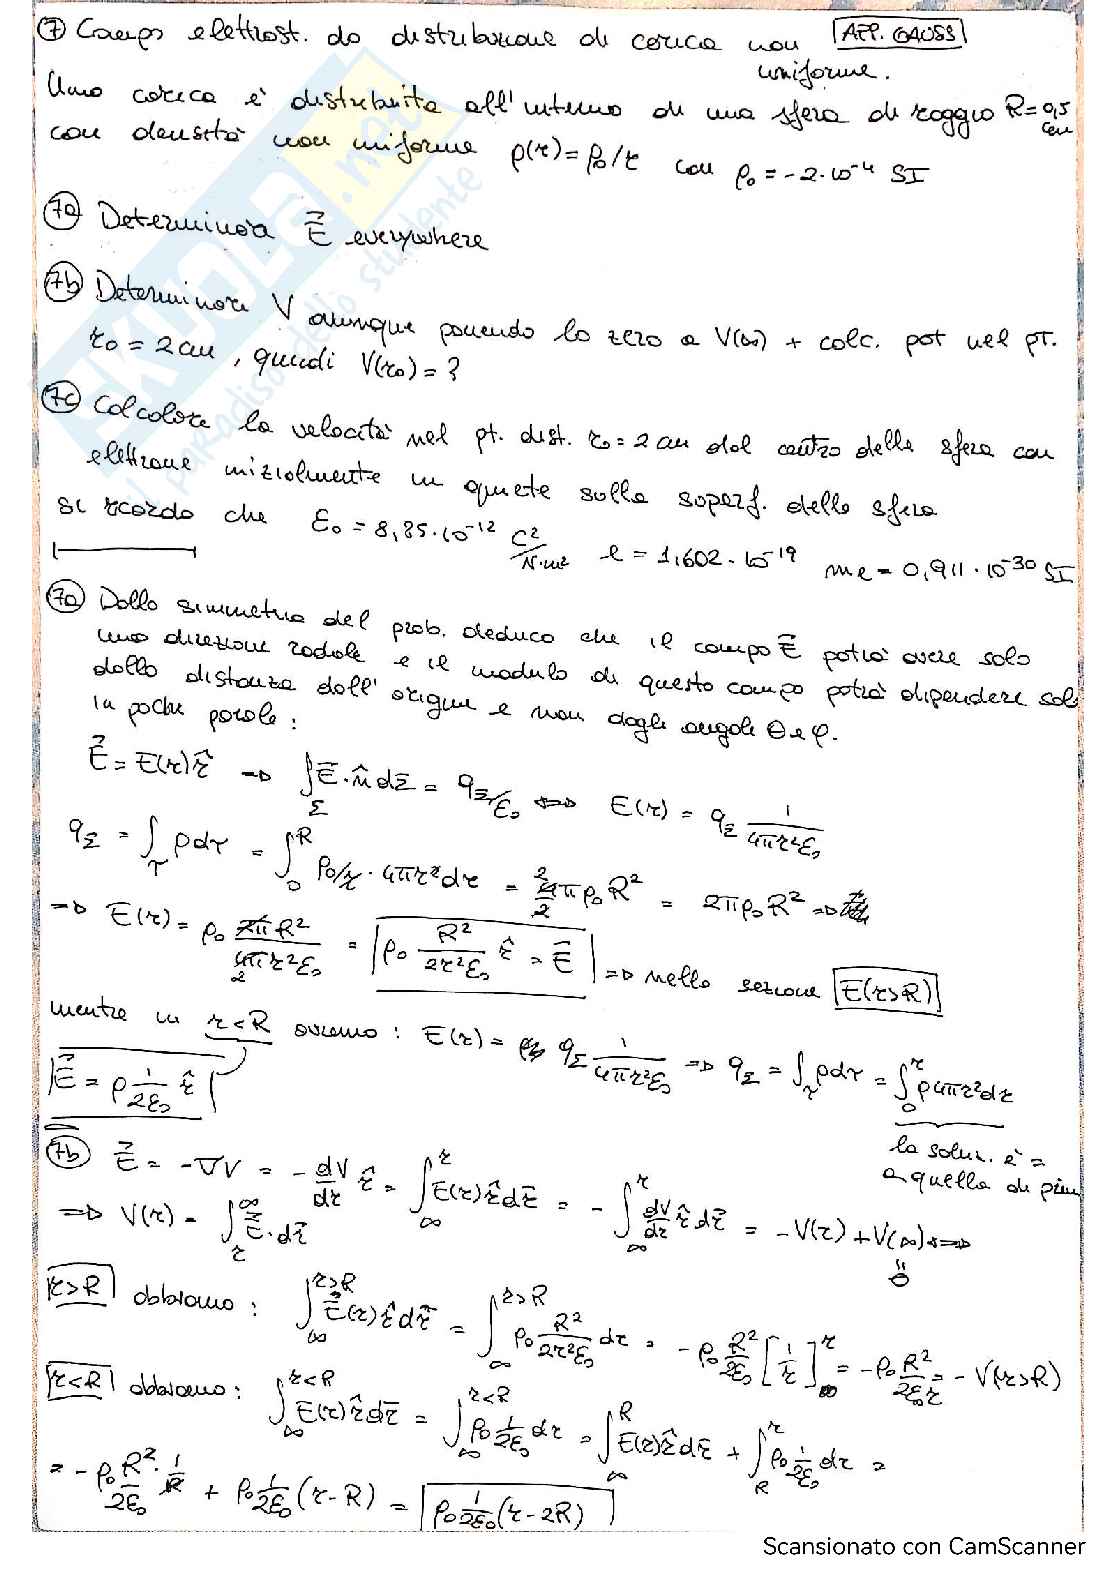 ⑦ Campo elettrost. da distribuzione di carica non uniforme. APP. GAUSS
Una carica è distribuita all'interno di una sfera di raggio R=0,5 cm
con densità non uniforme ρ(r)=ρ₀/r con ρ₀=-2·10⁻⁴ SI
7a Determinara E⃗ everywhere
7b Determinare V ovunque ponendo lo zero a V(∞) + calc. pot nel pt.
r₀=2cm, quindi V(r₀)=?
7c Calcolare la velocità nel pt. dist. r₀=2cm dal centro della sfera con
elettrone inizialmente in quiete sulla superf. della sfera
si ricorda che ε₀=8,85·10⁻¹² C²/N·m² e=1,602·10⁻¹⁹ me=0,911·10⁻³⁰ SI
7a Dalla simmetria del prob. deduco che il campo E⃗ potrà avere solo
una direzione radiale e il modulo di questo campo potrà dipendere solo
dalla distanza dall'origine e non dagli angoli θ e φ.
In poche parole:
E⃗=E(r)r̂ ⇒ ∫_Σ E⃗·n̂dΣ = q_Σ/ε₀ ⇔ E(r)=q_Σ 1/4πr²ε₀
q_Σ = ∫_τ ρdτ = ∫₀^R ρ₀/r · 4πr²dr = 4/2 πρ₀R² = 2πρ₀R² ⇒
⇒ E(r)=ρ₀ 2πR²/4πr²ε₀ = ρ₀ R²/2r²ε₀ r̂ = E⃗ ⇒ nella sezione E(r>R)
mentre in r<R avremo: E(r)= q_Σ 1/4πr²ε₀ ⇒ q_Σ=∫_τ ρdτ = ∫₀^r ρ4πr²dr
E⃗ = ρ 1/2ε₀ r̂
la soluz. è =
a quella di prima
7b E⃗ = -∇V = -dV/dr r̂ = ∫_∞^r E(r)r̂dr⃗ = -∫_∞^r dV/dr r̂dr⃗ = -V(r)+V(∞) ⇔
⇒ V(r) = ∫_r^∞ E⃗·dr⃗
0
r>R abbiamo: ∫_∞^{r>R} E⃗(r)r̂dr⃗ = ∫_∞^{r>R} ρ₀ R²/2r²ε₀ dr = -ρ₀ R²/2ε₀ [1/r]_∞^r = -ρ₀ R²/2ε₀r = -V(r>R)
r<R abbiamo: ∫_∞^{r<R} E(r)r̂dr⃗ = ∫_∞^{r<R} ρ₀ 1/2ε₀ dr = ∫_∞^R E(r)r̂dr⃗ + ∫_R^r ρ₀ 1/2ε₀ dr =
= -ρ₀ R²/2ε₀ · 1/R + ρ₀ 1/2ε₀ (r-R) = ρ₀ 1/2ε₀ (r-2R)
SKUOLA.net
il paradiso dello studente
Scansionato con CamScanner